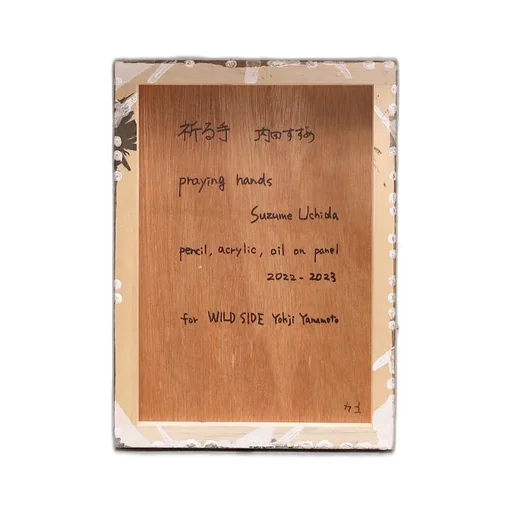 祈る手 内田すずめ
praying hands
Suzume Uchida
pencil, acrylic, oil on panel
2022 - 2023
for WILD SIDE Yohji Yamamoto